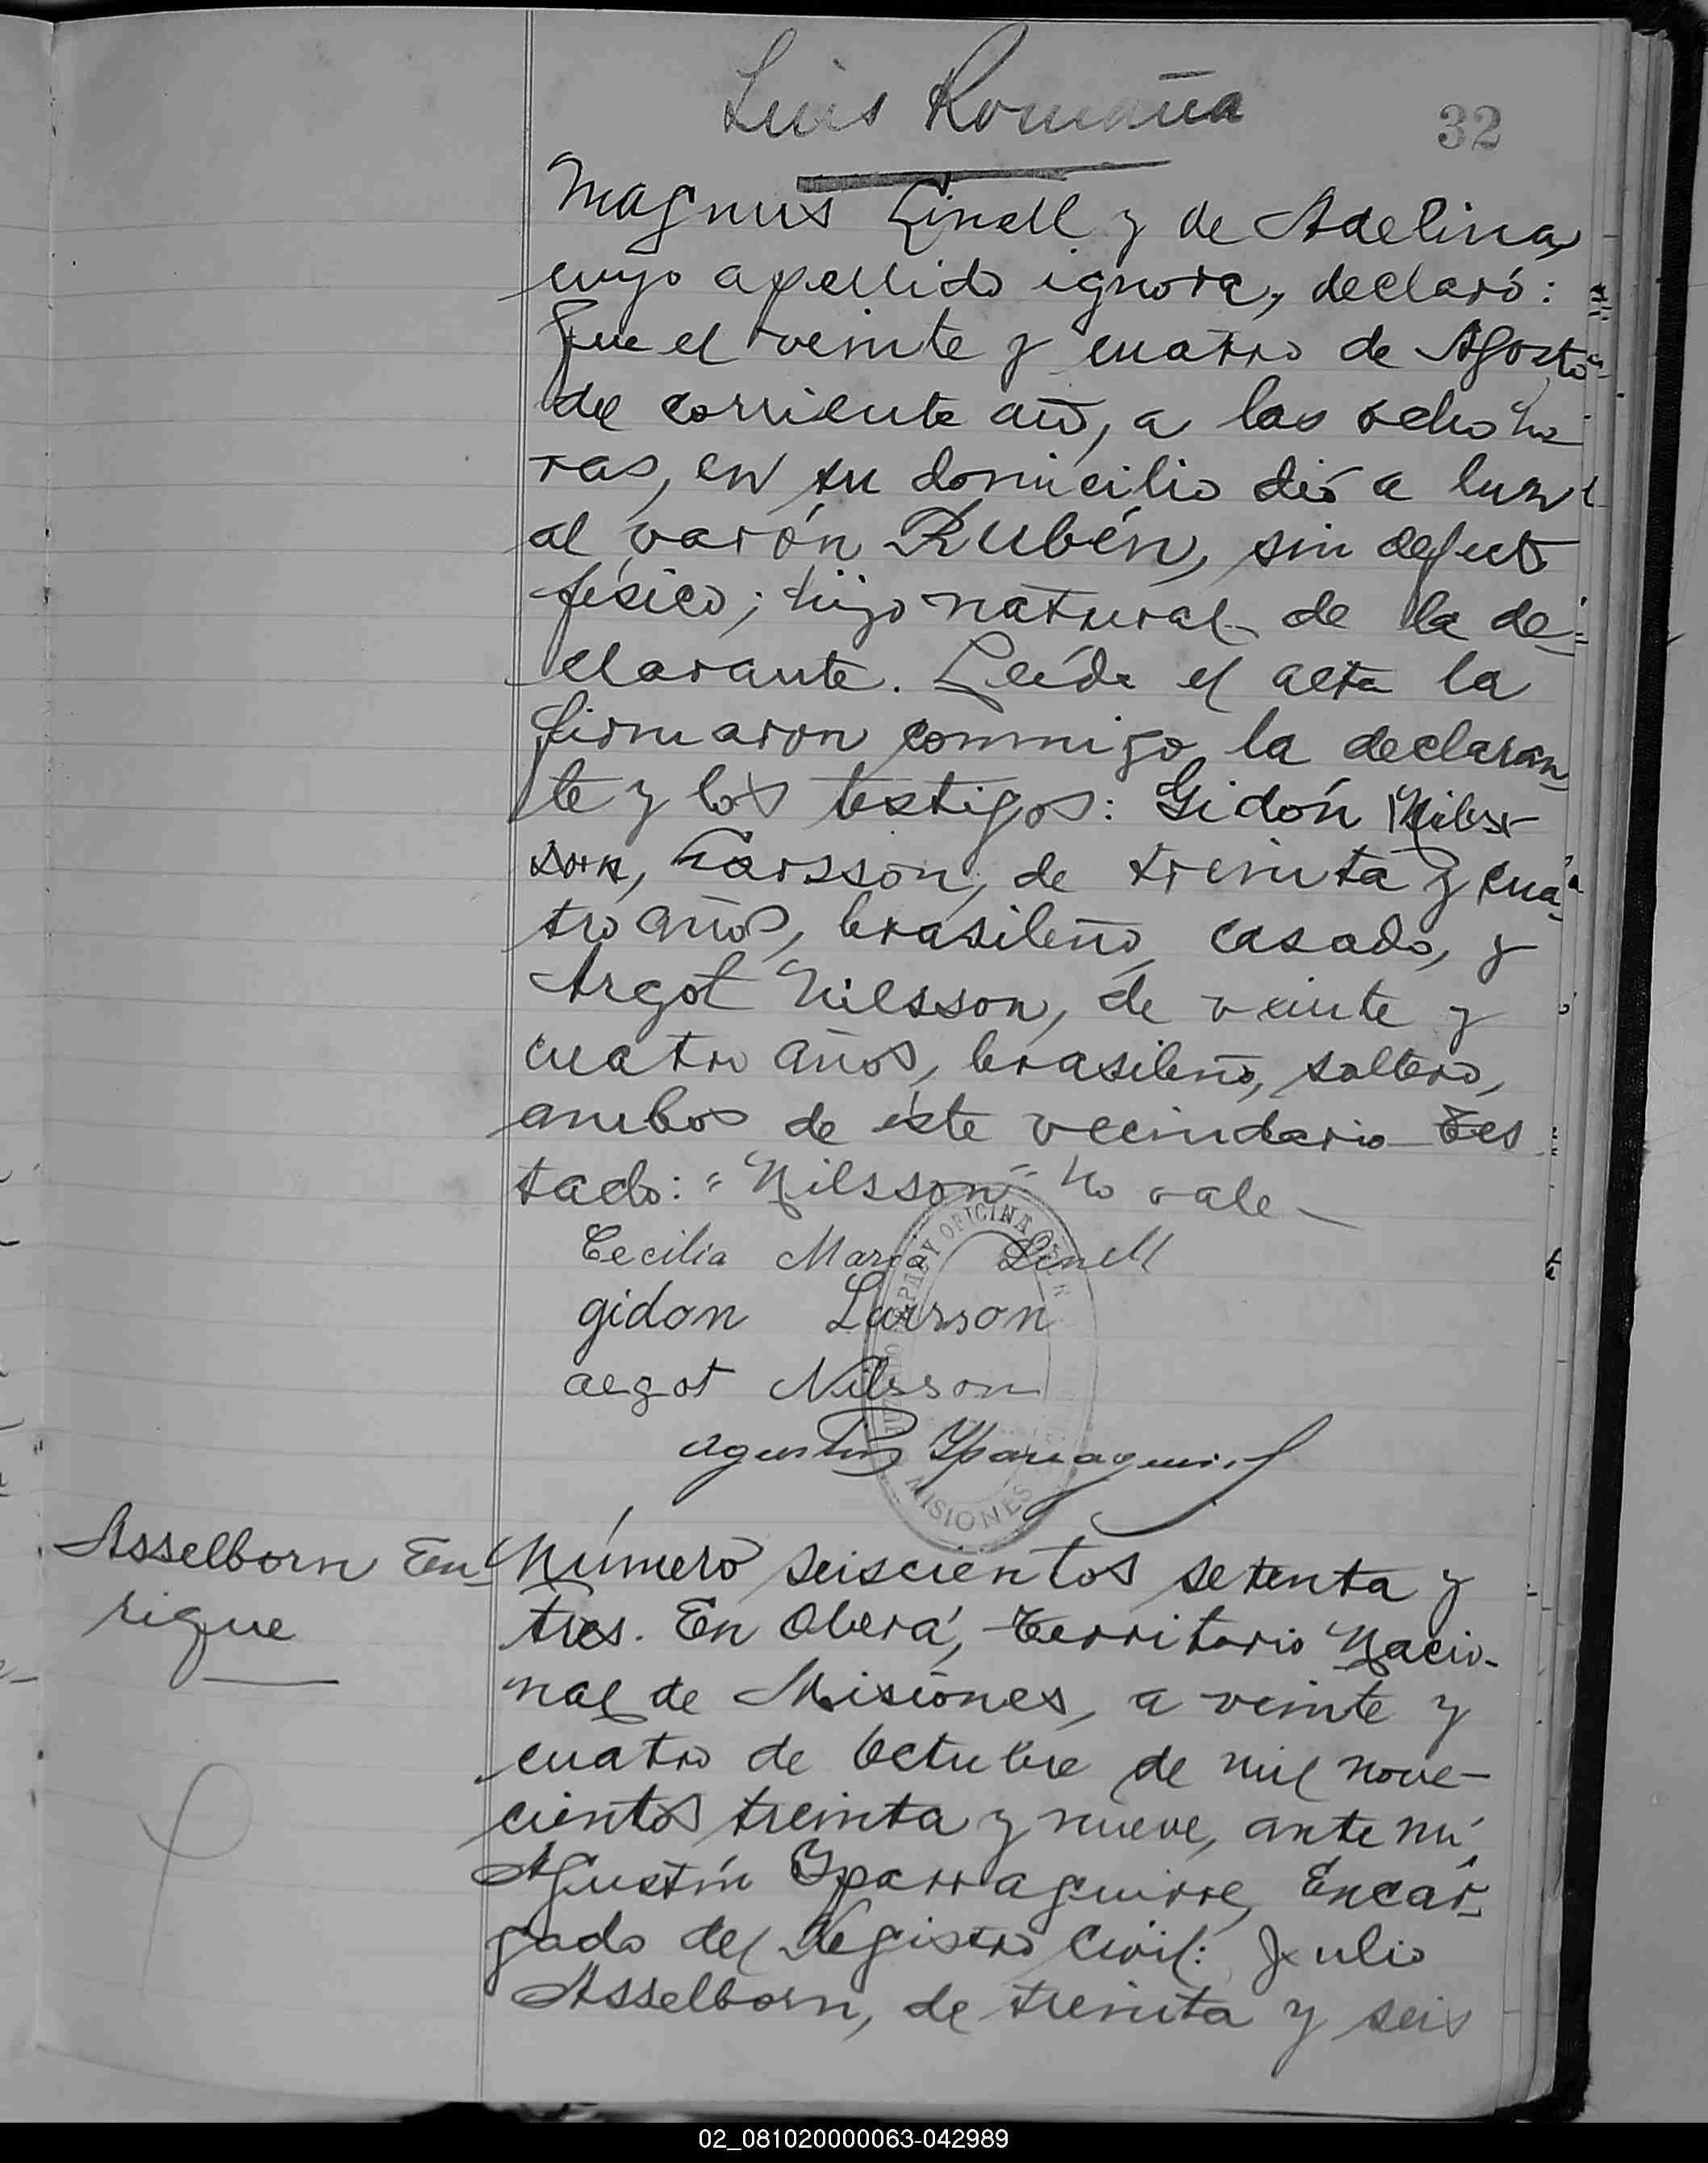 Luis Romaña
32
Magnus Linell y de Adelina,
cuyo apellido ignora, declaró:
Que el veinte y cuatro de Agosto
del corriente año, a las ocho ho
ras, en su domicilio dió a luz
al varón Rubén, sin defecto
físico; hijo natural de la de-
clarante. Leída el acta la
firmaron conmigo la declaran
te y los testigos: Gidón Nils
son, Larsson, de treinta y cua-
tro años, brasileño, casado, y
Argot Nilsson, de veinte y
cuatro años, brasileño, soltero,
ambos de este vecindario Tes
tado: "Nilsson" No vale
Cecilia Maria Linell
gidon Larsson
aegot Nilsson
Agustin Yparraguirre
OFICINA
MISIONES
Asselborn En-
rique
Número seiscientos setenta y
tres. En Oberá, Territorio Nacio-
nal de Misiones, a veinte y
cuatro de Octubre de mil nove-
cientos treinta y nueve, ante mí,
Agustín Yparraguirre, Encar-
gado del Registro Civil: Julio
Asselborn, de treinta y seis
02_081020000063-042989